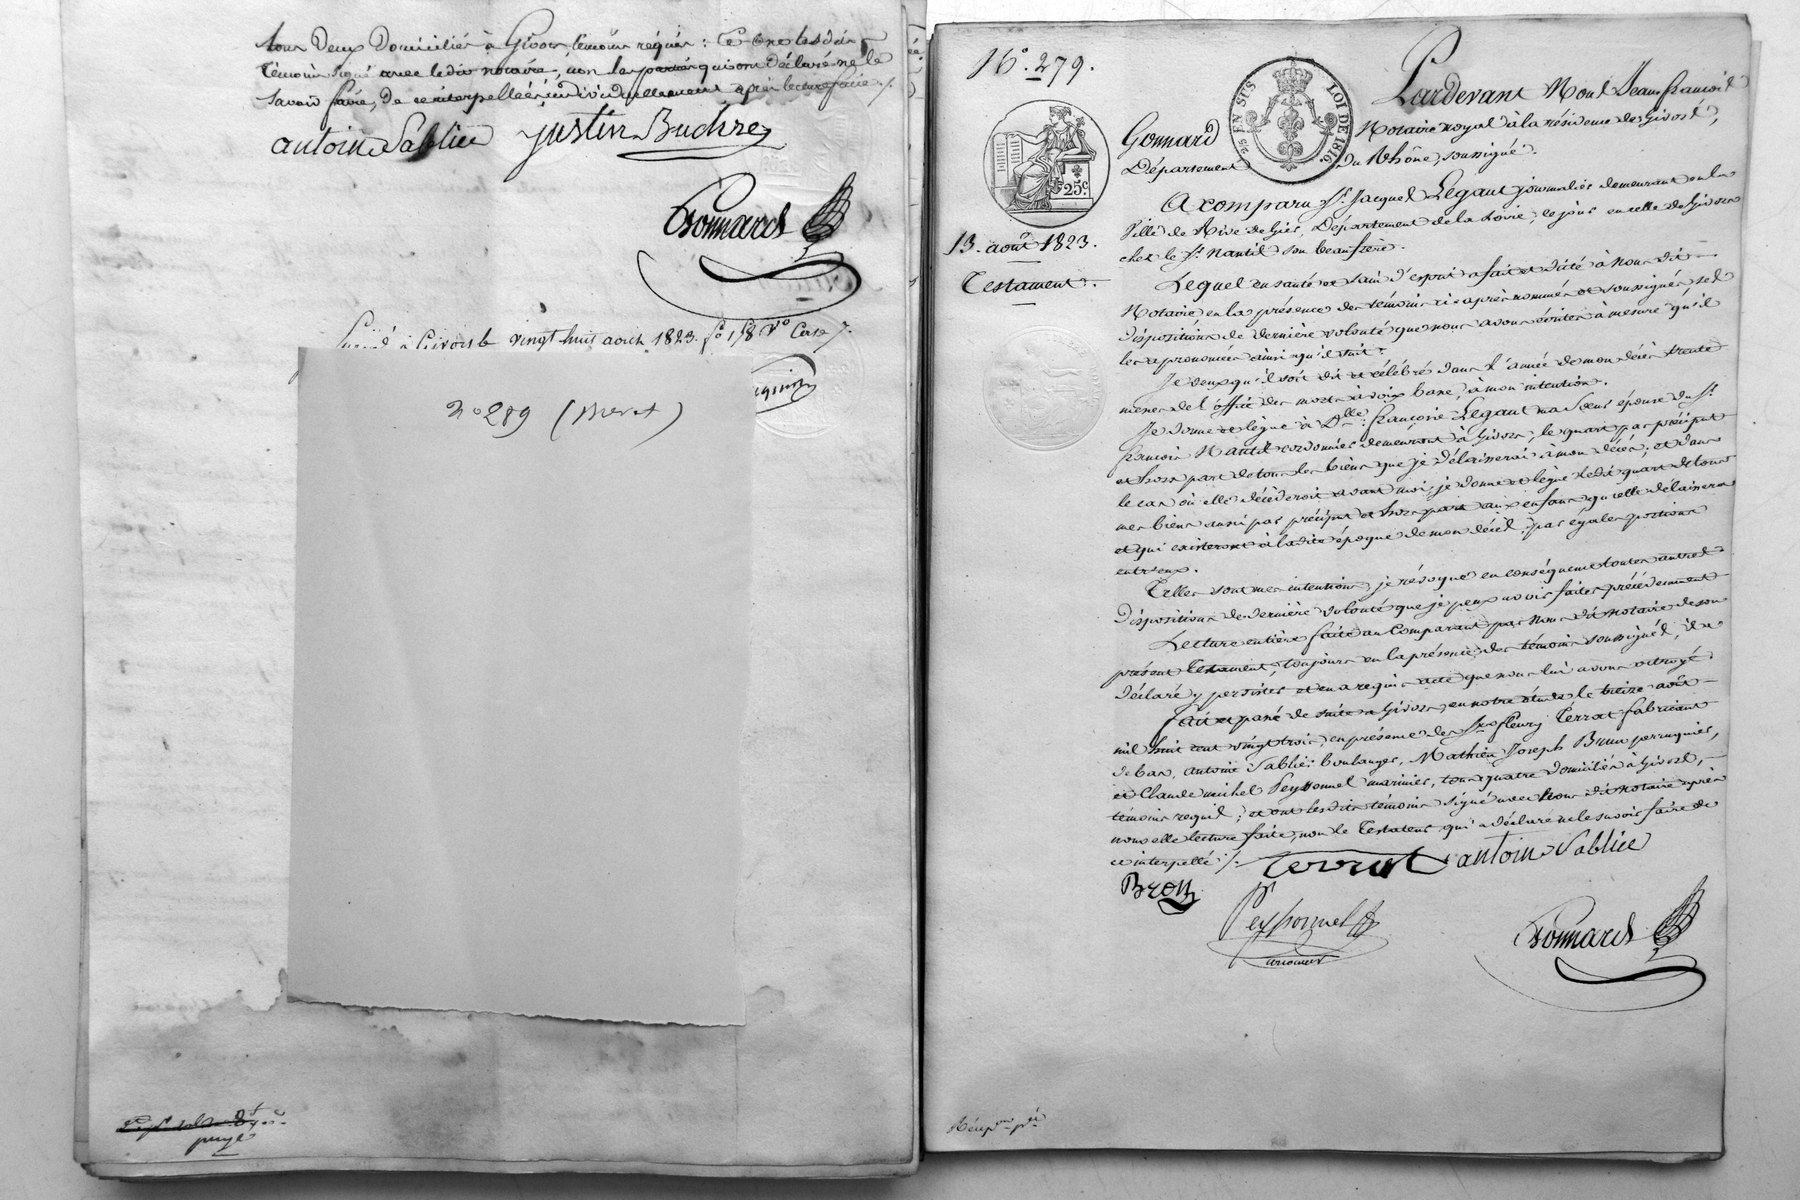 tous Deux Domiciliés à Givors, témoins requis : Ce
témoins signé avec ledit notaire, non les parties qui ont déclaré ne le
savoir faire, de ce interpellées individuellement après lecture faite ./.
antoine Sabliée justin Buchre
Gonnard
à Givors le vingt huit aouth 1823. fo 158 Vo Case 7.
no 289 (Brevet)
No. 279.
EN SUS LOI DE 1816.
25c
13. août 1823.
Testament.
Pardevant Nous Jean françois
Gonnard Notaire royal à la résidence de Givors,
Département du Rhône, soussigné.
A comparu Sr. Jacques Legaut journalier demeurant en la
Ville de Rive de Gier, Département de la Loire, ce jour en celle de Givors
chez le Sr. Nantil son beaufrère.
Lequel en santé et sain d'esprit a fait et dicté à Nous dit
Notaire en la présence des témoins ci-après nommés et soussignés ses
dispositions de dernière volonté que nous avons écrites à mesure qu'il
les a prononcées ainsi qu'il suit.
Je veux qu'il soit dit et célébré dans l'année de mon décès trente
messes de l'office des morts à voix basse, à mon intention.
Je donne et lègue à Dlle. françoise Legaut ma Soeur épouse du Sr.
françois Nantil cordonnier demeurant à Givors, le quart par préciput
et hors part de tous les biens que je délaisserai à mon décès; et dans
le cas où elle décèderoit avant moi, je donne et lègue ledit quart de tous
mes biens aussi par préciput et hors part aux enfans qu'elle délaissera
et qui existeront à ladite époque de mon décès, par égales portions
entr'eux.
Telles sont mes intentions, je révoque en conséquence toutes autres
Dispositions de dernière volonté que je peux avoir faites précédemment
Lecture entière faite au Comparant par Nous dit notaire de son
présent Testament, toujours en la présence des témoins soussignés, il a
déclaré y persister et en a requis acte que nous lui avons octroyé
fait et passé de suite à Givors, en notre étude le treize août
mil huit cent vingt trois, en présence de Srs. fleury Terrat fabricant
de bas, antoine Sablié boulanger, Mathieu Joseph Brun perruquier,
et Claude michel Peyssonnel marinier, tous quatre domiciliés à Givors,
témoins requis; et ont lesdits témoins signé avec Nous dit notaire après
nouvelle lecture faite, non le Testateur qui a déclaré ne le savoir faire de
ce interpellé ./.
Terrat antoine Sabliée
Bron
Peyssonnel
Gonnard